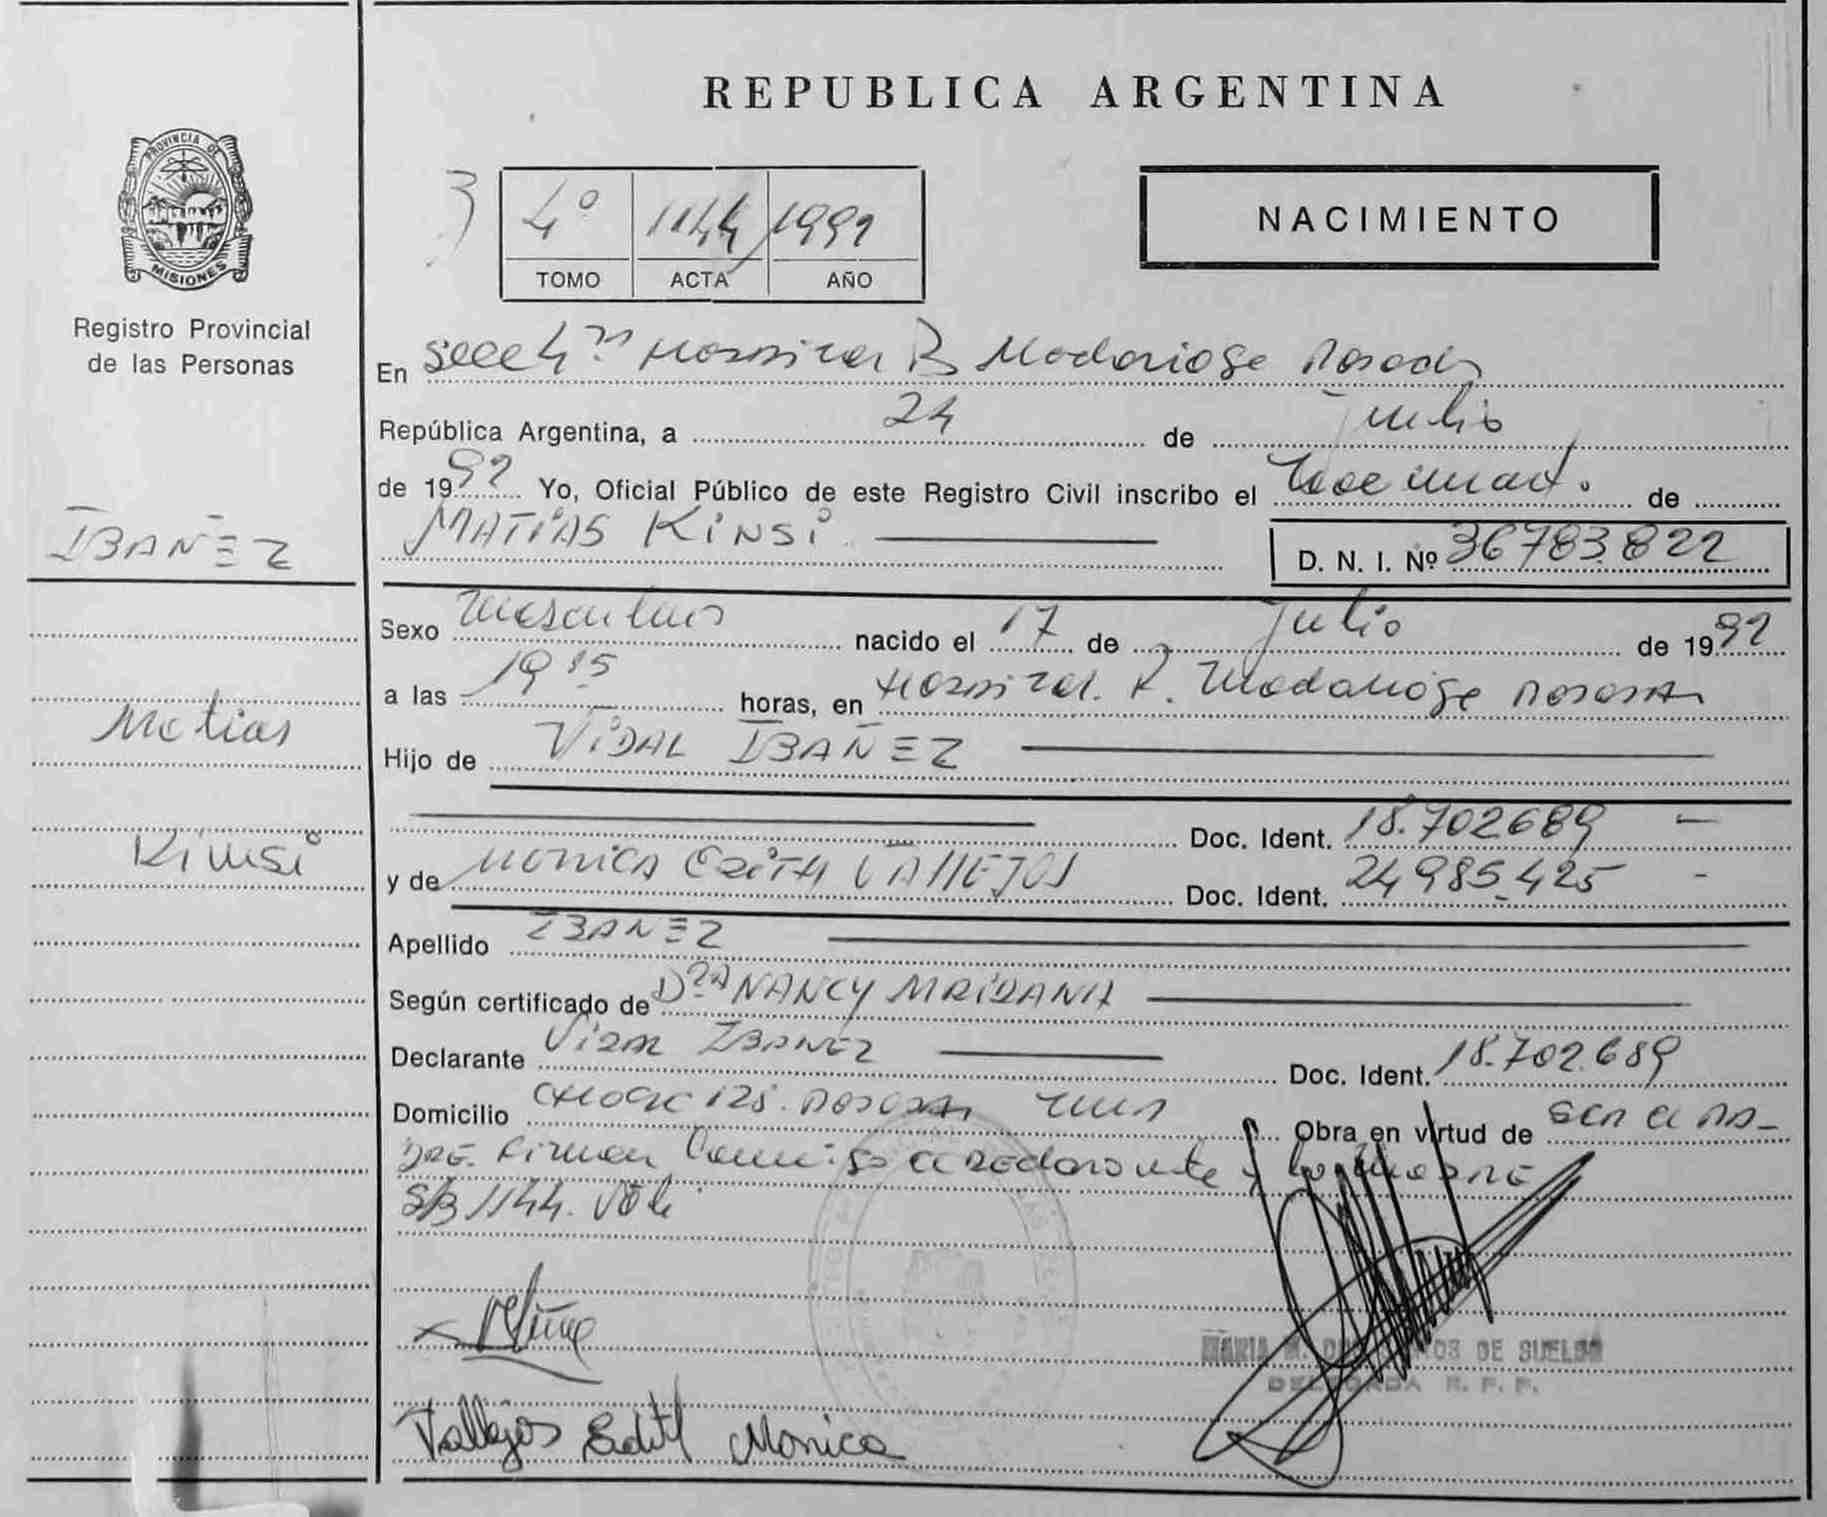 PROVINCIA DE
MISIONES
Registro Provincial
de las Personas
IBAÑEZ
Matias
Kinsi
REPUBLICA ARGENTINA
3
4º 1144 1992
TOMO ACTA AÑO
NACIMIENTO
En Secc 4ta Hospital R Madariaga Posadas
República Argentina, a 24 de Julio
de 1992 Yo, Oficial Público de este Registro Civil inscribo el de
MATIAS KINSI D. N. I. Nº 36783.822
Sexo Masculino nacido el 17 de Julio de 1992
a las 19 15 horas, en Hospital. R. Madariaga Posadas
Hijo de VIDAL IBAÑEZ
Doc. Ident. 18.702689 -
y de MONICA EDITH VALLEJOS Doc. Ident. 24985.425 -
Apellido IBAÑEZ
Según certificado de Dra NANCY
Declarante VIDAL IBAÑEZ Doc. Ident. 18.702.689
Domicilio 125. POSADAS Obra en virtud de ser el PA-
DRE. Firman Conmigo el declarante y la MADRE
S/B 1144.
Vallejos Edith Monica
MARIA DE SUELDO
DELEGADA R. P. P.